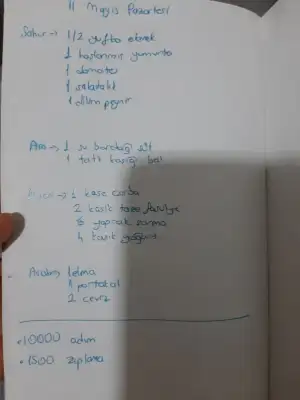 11 Mayıs Pazartesi
Sahur → 1/2 yufka ekmek
1 haşlanmış yumurta
1 domates
1 salatalık
1 dilim peynir
Ara → 1 su bardağı süt
1 tatlı kaşığı bal
→ 1 kase çorba
2 kaşık taze fasulye
8 yaprak sarma
4 kaşık yoğurt
1 elma
1 portakal
2 ceviz
• 10000 adım
• 1500 zıplama